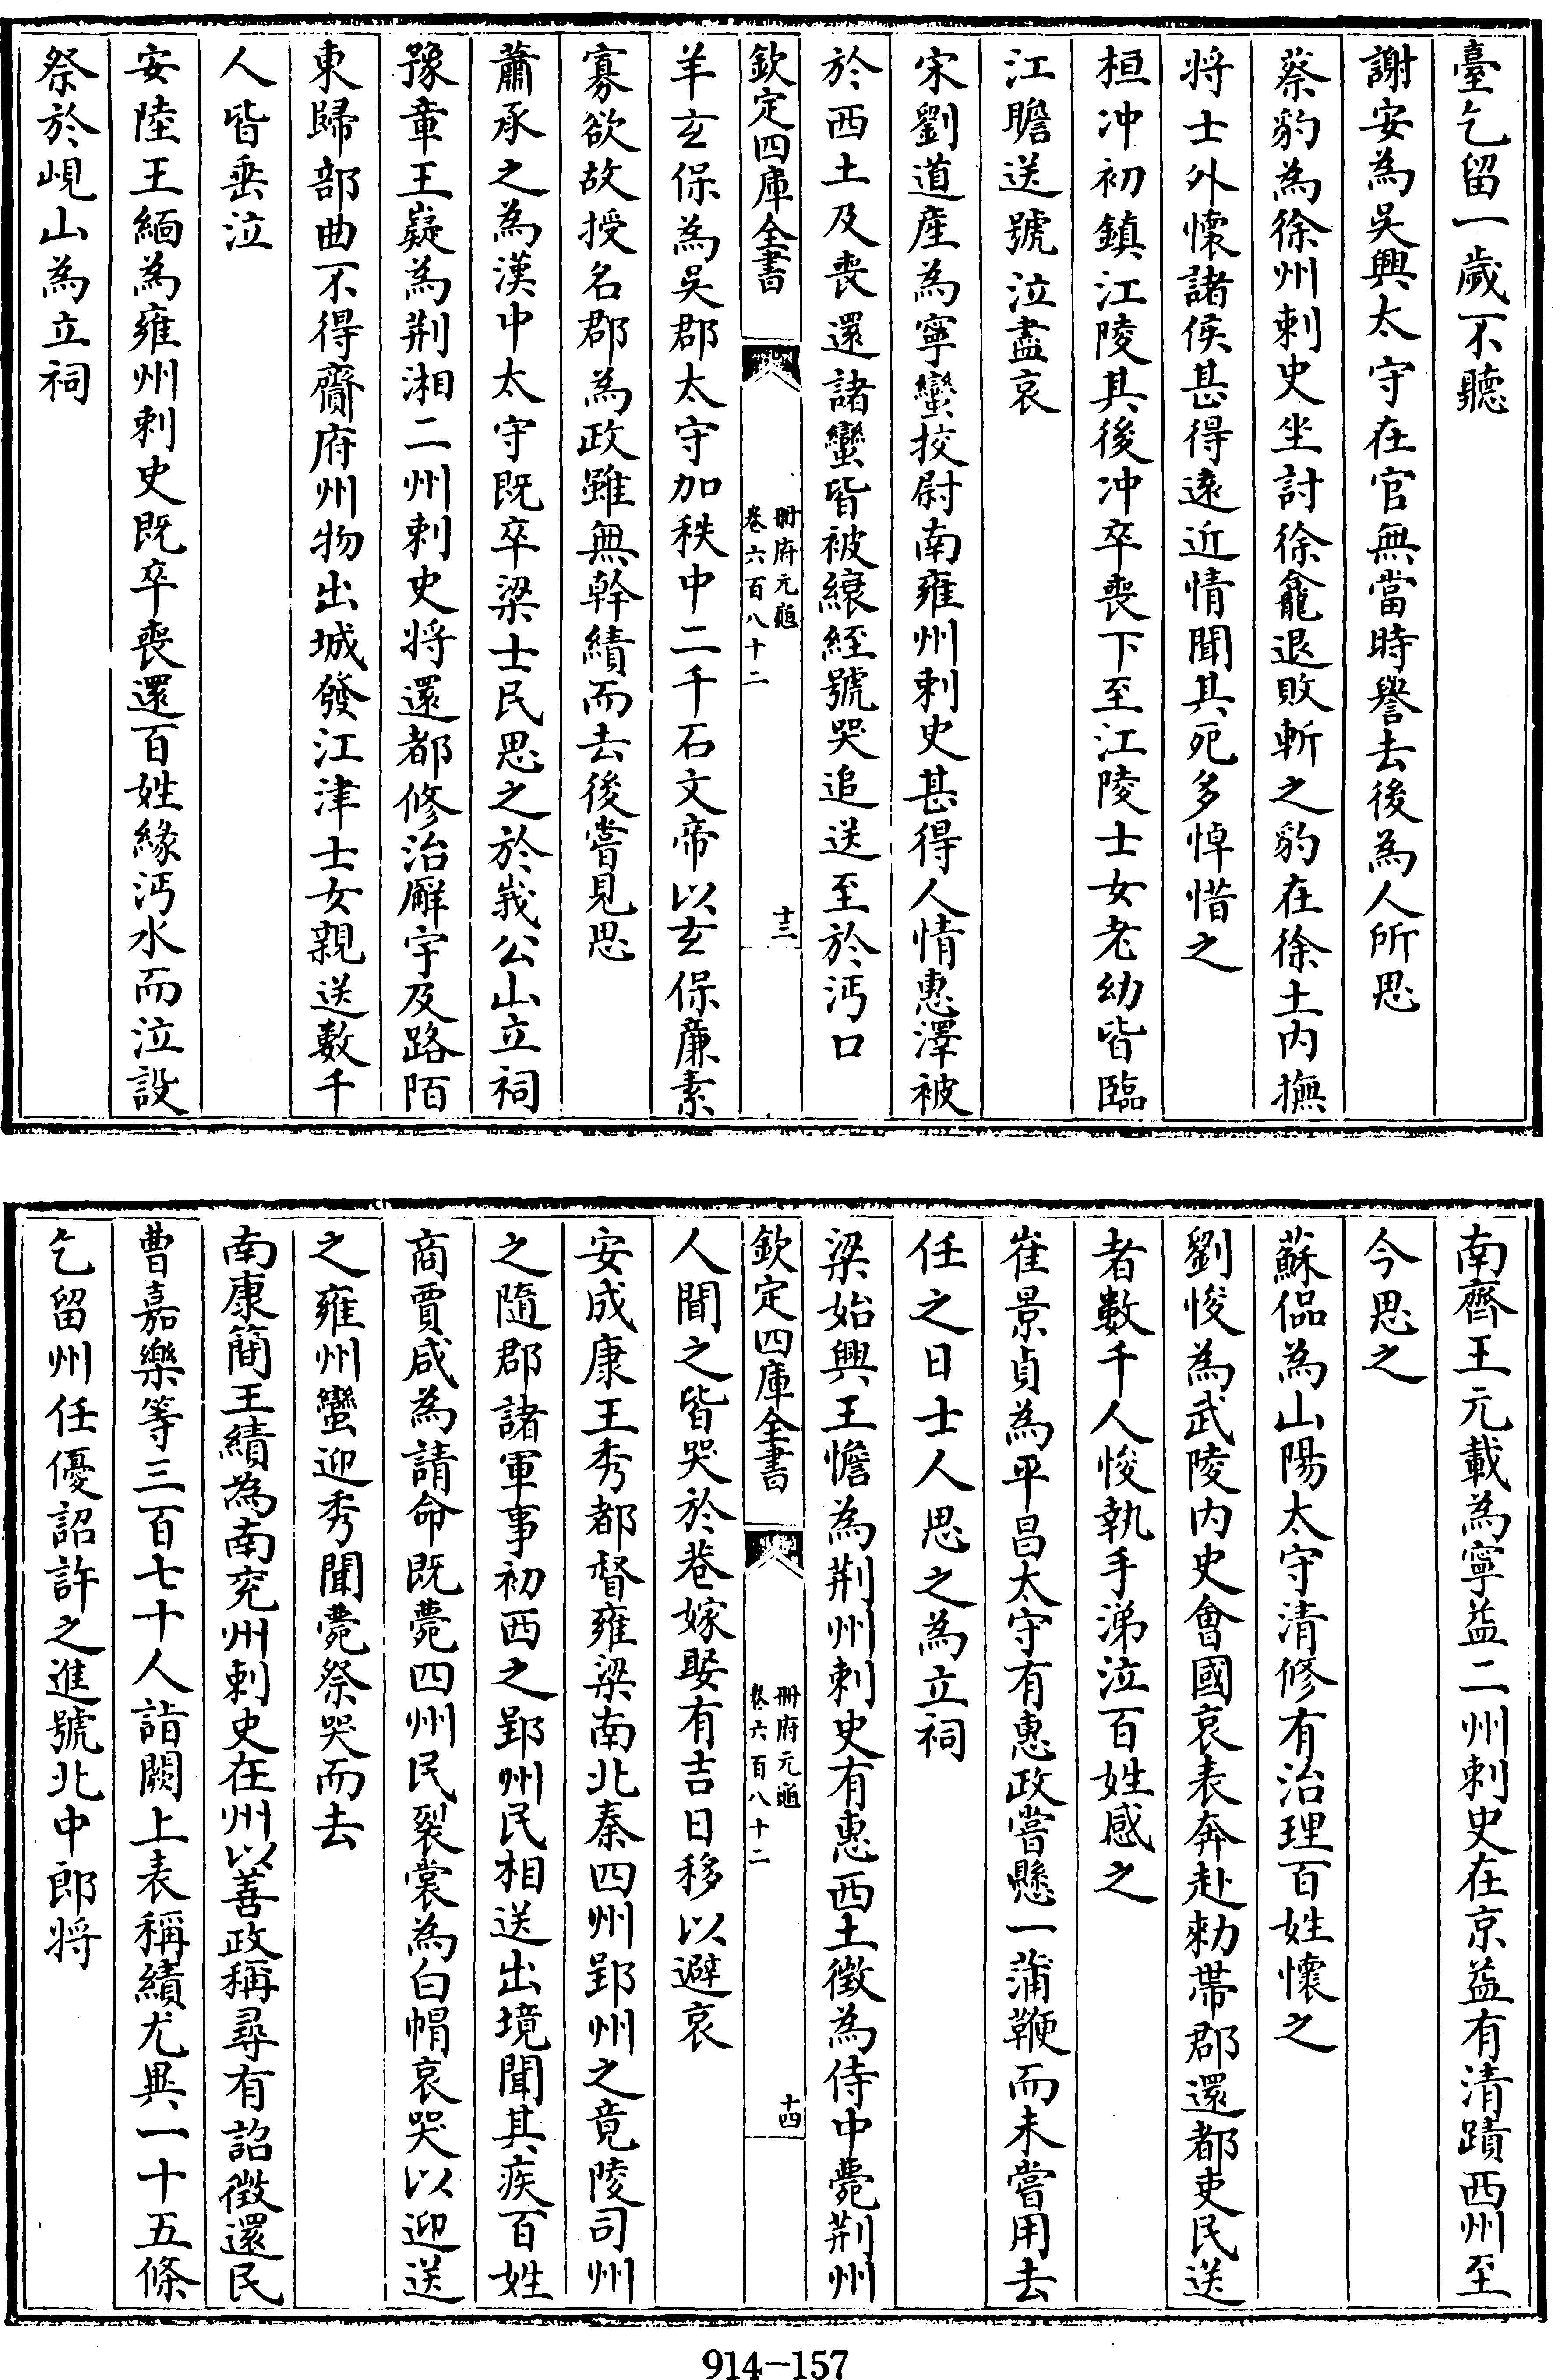 臺乞留一歲不聽
謝安為吳興太守在官無當時譽去後為人所思
蔡豹為徐州刺史坐討徐龕退敗斬之豹在徐土内撫
將士外懷諸侯甚得遠近情聞其死多悼惜之
桓沖初鎮江陵其後沖卒喪下至江陵士女老幼皆臨
江瞻送號泣盡哀
宋劉道産為寧蠻挍尉南雍州刺史甚得人情惠澤被
於西土及喪還諸蠻皆被縗絰號哭追送至於沔口
欽定四庫全書
冊府元龜
卷六百八十二
十三
羊玄保為吳郡太守加秩中二千石文帝以玄保廉素
寡欲故授名郡為政雖無幹績而去後嘗見思
蕭承之為漢中太守既卒梁士民思之於峩公山立祠
豫章王嶷為荆湘二州刺史將還都修治廨宇及路陌
東歸部曲不得齎府州物出城發江津士女親送數千
人皆垂泣
安陸王緬為雍州刺史既卒喪還百姓緣沔水而泣設
祭於峴山為立祠
南齊王元載為寧益二州刺史在京益有清蹟西州至
今思之
蘇侃為山陽太守清修有治理百姓懷之
劉悛為武陵内史會國哀表奔赴勑帶郡還都吏民送
者數千人悛執手涕泣百姓感之
崔景貞為平昌太守有惠政嘗懸一蒲鞭而未嘗用去
任之日士人思之為立祠
梁始興王憺為荆州刺史有惠西土徵為侍中薨荆州
欽定四庫全書
冊府元龜
卷六百八十二
十四
人聞之皆哭於巷嫁娶有吉日移以避哀
安成康王秀都督雍梁南北秦四州郢州之竟陵司州
之隨郡諸軍事初西之郢州民相送出境聞其疾百姓
商賈咸為請命既薨四州民裂裳為白帽哀哭以迎送
之雍州蠻迎秀聞薨祭哭而去
南康簡王績為南兖州刺史在州以善政稱尋有詔徵還民
曹嘉樂等三百七十人詣闕上表稱績尤異一十五條
乞留州任優詔許之進號北中郎將
914-157